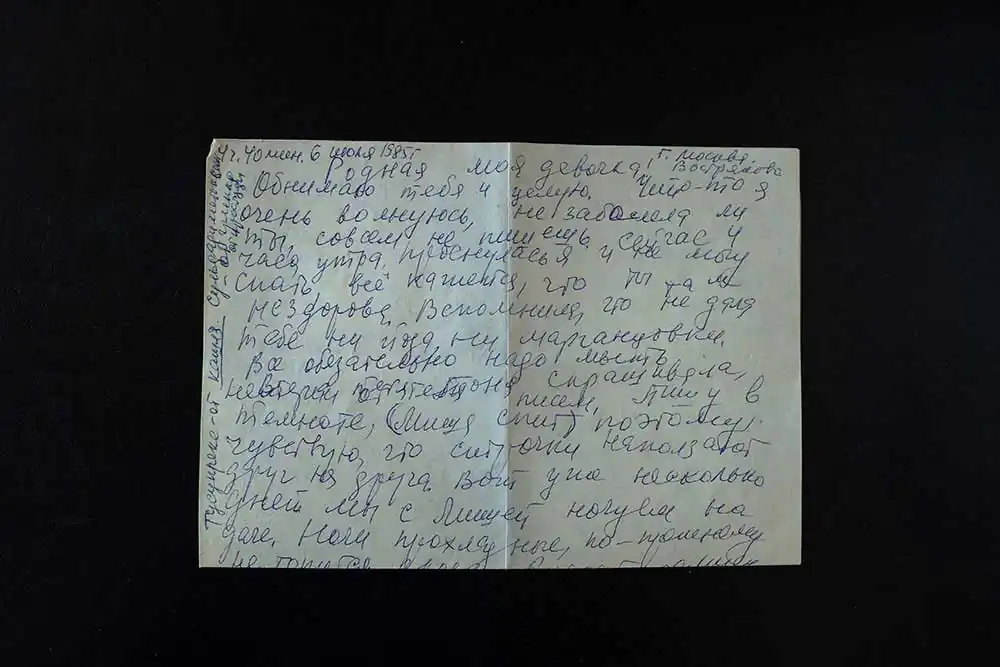 4 ч. 40 мин. 6 июля 1985 г
г. Москва.
Вострякова
Родная моя девочка!
Обнимаю тебя и целую. Что-то я
очень волнуюсь, не заболела ли
ты, совсем не пишешь. сейчас 4
часа утра, проснулась я и не могу
спать всё кажется, что ты там
нездорова. Вспомнила, что не дала
тебе ни йода, ни марганцовки.
Все обязательно надо мыть
спрашивала,
писем, пишу в
темноте, (Миша спит) поэтому
чувствую, что строчки наползают
друг на друга. Вот уже несколько
дней мы с Мишей ночуем на
даче. Ночи прохладные, по-прежнему
не топится
от кашля